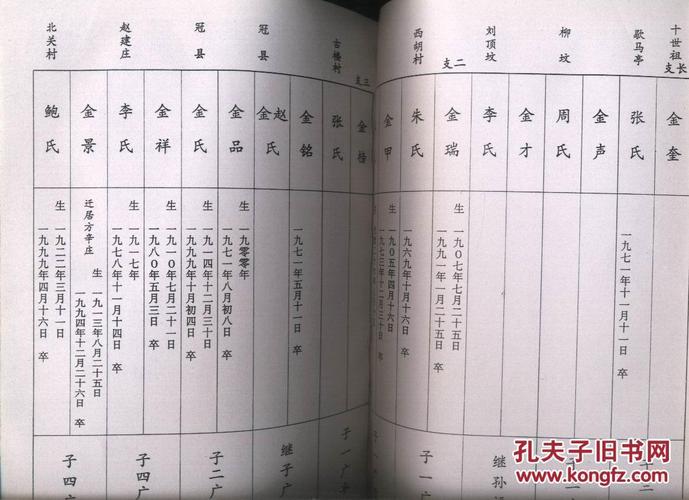 十世祖
支长
歇马亭
柳坟
刘顶坟
支二
西胡村
支三
古楼村
冠县
冠县
赵建庄
北关村
金奎
张氏
一九七一年十一月十一日 卒
金声
周氏
金才
李氏
金瑞
生 一九〇七年七月二十五日
一九九一年一月二十五日 卒
朱氏
一九六九年十月十六日 卒
金甲
生 一九〇五年四月十六日
一九七三年十二月三十日 卒
金榜
张氏
金铭
一九七一年五月十一日 卒
赵氏
金
金品
生 一九〇〇年
一九七一年八月初八日 卒
金氏
生 一九一四年十二月三十日
一九九九年十月初四日 卒
金祥
生 一九一〇年七月二十一日
一九八〇年五月三日 卒
李氏
生 一九一七年
一九七八年十一月十四日 卒
金景
迁居方辛庄 生 一九一三年八月二十五日
一九九四年十二月二十六日 卒
鲍氏
生 一九二二年三月十一日
一九九九年四月十六日 卒
继孙
子一广
子一广
继子广
子二广
子四广
子四广
孔夫子旧书网
www.kongfz.com